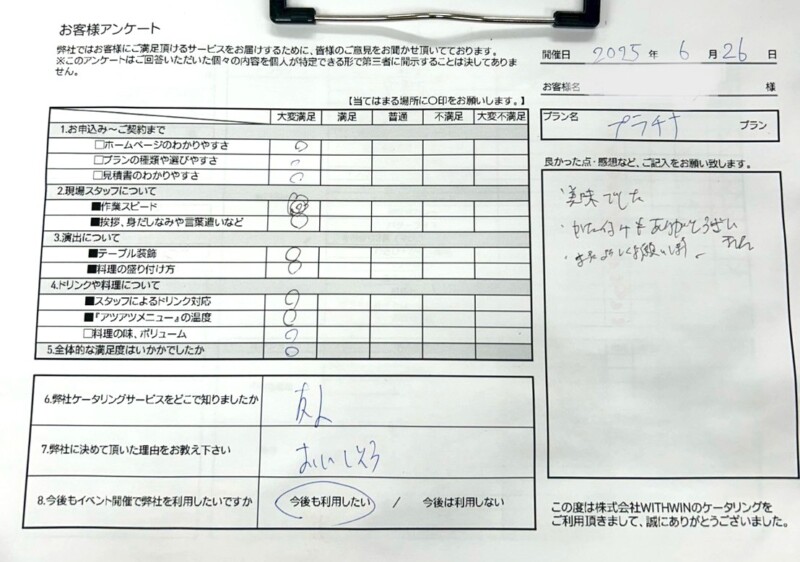 お客様アンケート
弊社ではお客様にご満足頂けるサービスをお届けするために、皆様のご意見をお聞かせ頂いております。
※このアンケートはご回答いただいた個々の内容を個人が特定できる形で第三者に開示することは決してありま
せん。
開催日 2025 年 6 月 26 日
お客様名 様
プラン名 プラチナ プラン
【当てはまる場所に○印をお願いします。】
大変満足 満足 普通 不満足 大変不満足
1.お申込み～ご契約まで
□ホームページのわかりやすさ ○
□プランの種類や選びやすさ ○
□見積書のわかりやすさ ○
2.現場スタッフについて
■作業スピード ○
■挨拶、身だしなみや言葉遣いなど ○
3.演出について
■テーブル装飾 ○
■料理の盛り付け方 ○
4.ドリンクや料理について
■スタッフによるドリンク対応 ○
■『アツアツメニュー』の温度 ○
□料理の味、ボリューム ○
5.全体的な満足度はいかかでしたか ○
6.弊社ケータリングサービスをどこで知りましたか 友人
7.弊社に決めて頂いた理由をお教え下さい おいしそう
8.今後もイベント開催で弊社を利用したいですか 今後も利用したい / 今後は利用しない
良かった点・感想など、ご記入をお願い致します。
美味でした
・かた付けもありがとうござい
ました
・またよろしくお願いします
この度は株式会社WITHWINのケータリングを
ご利用頂きまして、誠にありがとうございました。